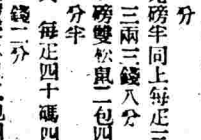 分
磅半同上每疋三
三兩三錢八分
磅雙松鼠二包四
分半
每疋四十碼四
錢二分